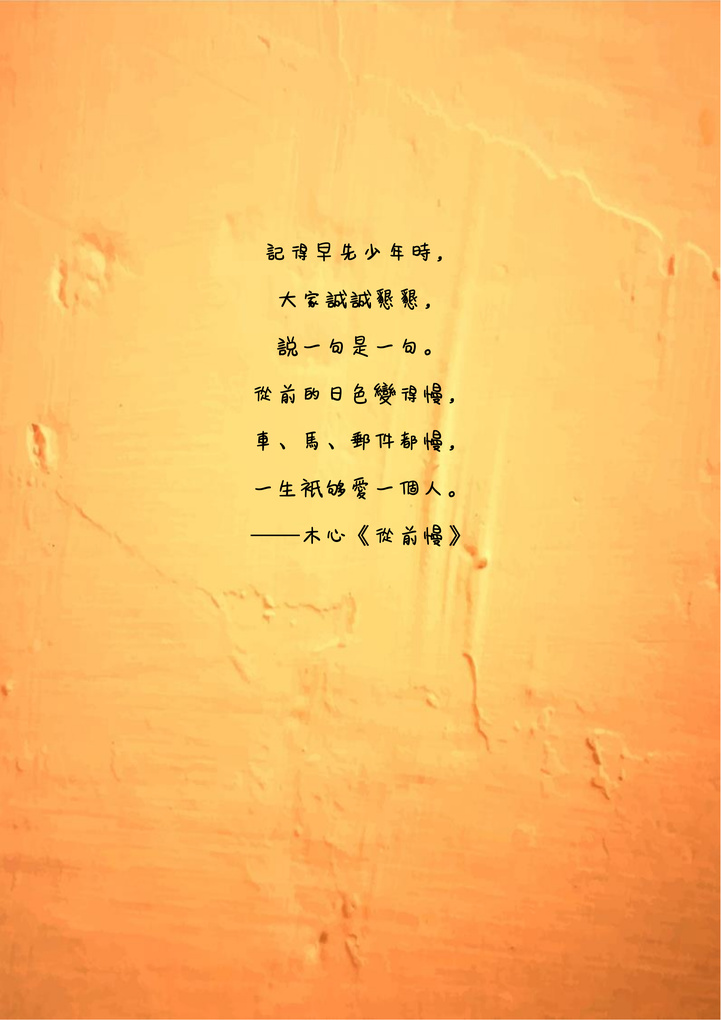 記得早先少年時，
大家誠誠懇懇，
説一句是一句。
從前的日色變得慢，
車、馬、郵件都慢，
一生衹够愛一個人。
——木心《從前慢》